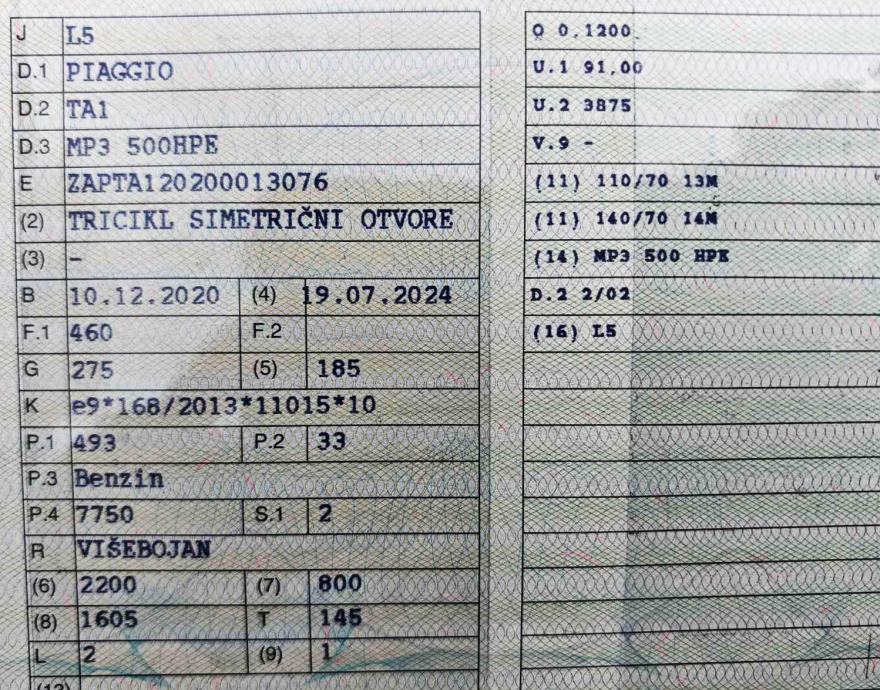 J L5
D.1 PIAGGIO
D.2 TA1
D.3 MP3 500HPE
E ZAPTA120200013076
(2) TRICIKL SIMETRIČNI OTVORE
(3) -
B 10.12.2020 (4) 19.07.2024
F.1 460 F.2
G 275 (5) 185
K e9*168/2013*11015*10
P.1 493 P.2 33
P.3 Benzin
P.4 7750 S.1 2
R VIŠEBOJAN
(6) 2200 (7) 800
(8) 1605 T 145
L 2 (9) 1
Q 0,1200
U.1 91,00
U.2 3875
V.9 -
(11) 110/70 13M
(11) 140/70 14M
(14) MP3 500 HPE
D.2 2/02
(16) L5